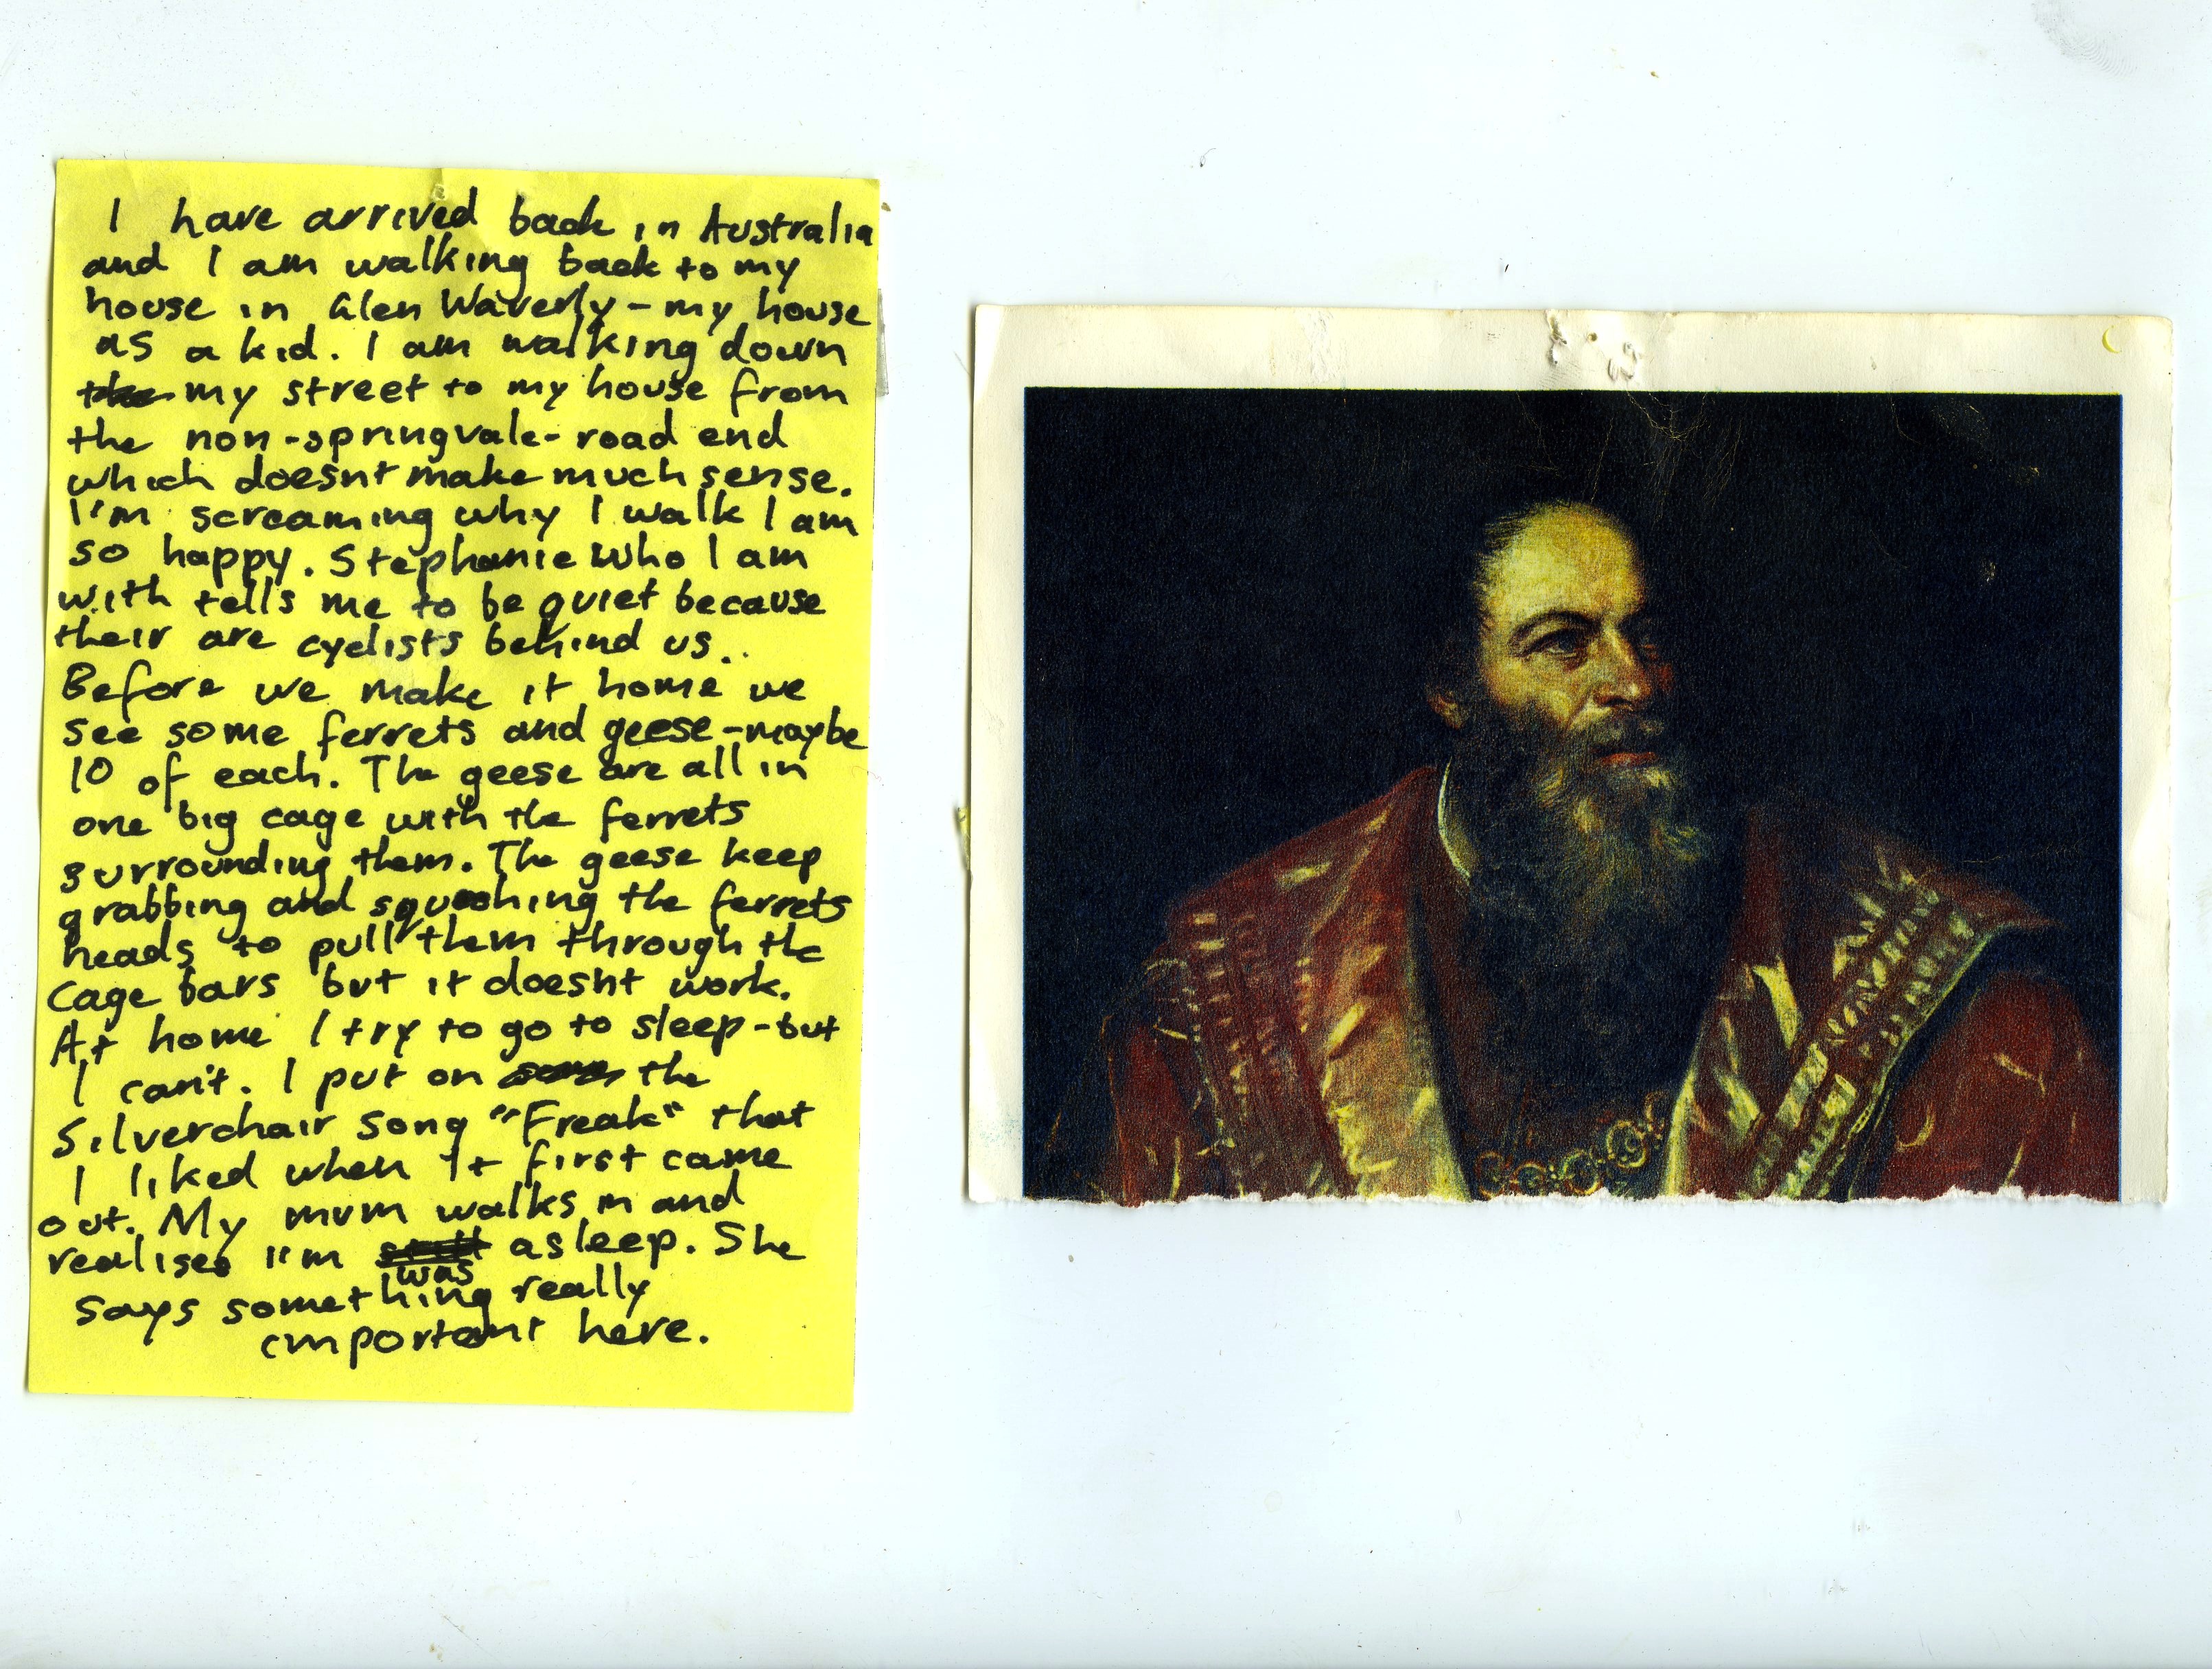 I have arrived back in Australia
and I am walking back to my
house in Glen Waverly - my house
as a kid. I am walking down
the my street to my house from
the non-springvale-road end
which doesnt make much sense.
I'm screaming why I walk I am
so happy. Stephanie who I am
with tells me to be quiet because
their are cyclists behind us..
Before we make it home we
see some ferrets and geese - maybe
10 of each. The geese are all in
one big cage with the ferrets
surrounding them. The geese keep
grabbing and squoshing the ferrets
heads to pull them through the
cage bars but it doesnt work.
At home I try to go to sleep - but
I can't. I put on the
Silverchair song "Freak" that
I liked when it first came
out. My mum walks in and
realises I'm asleep. She
was
says something really
important here.